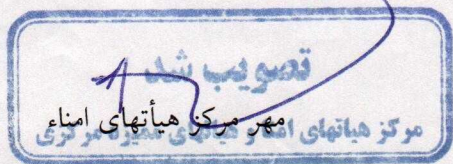 تصویب شد
مهر مرکز هیأتهای امناء
مرکز هیاتهای امنا و هیاتهای ممیزه مرکزی